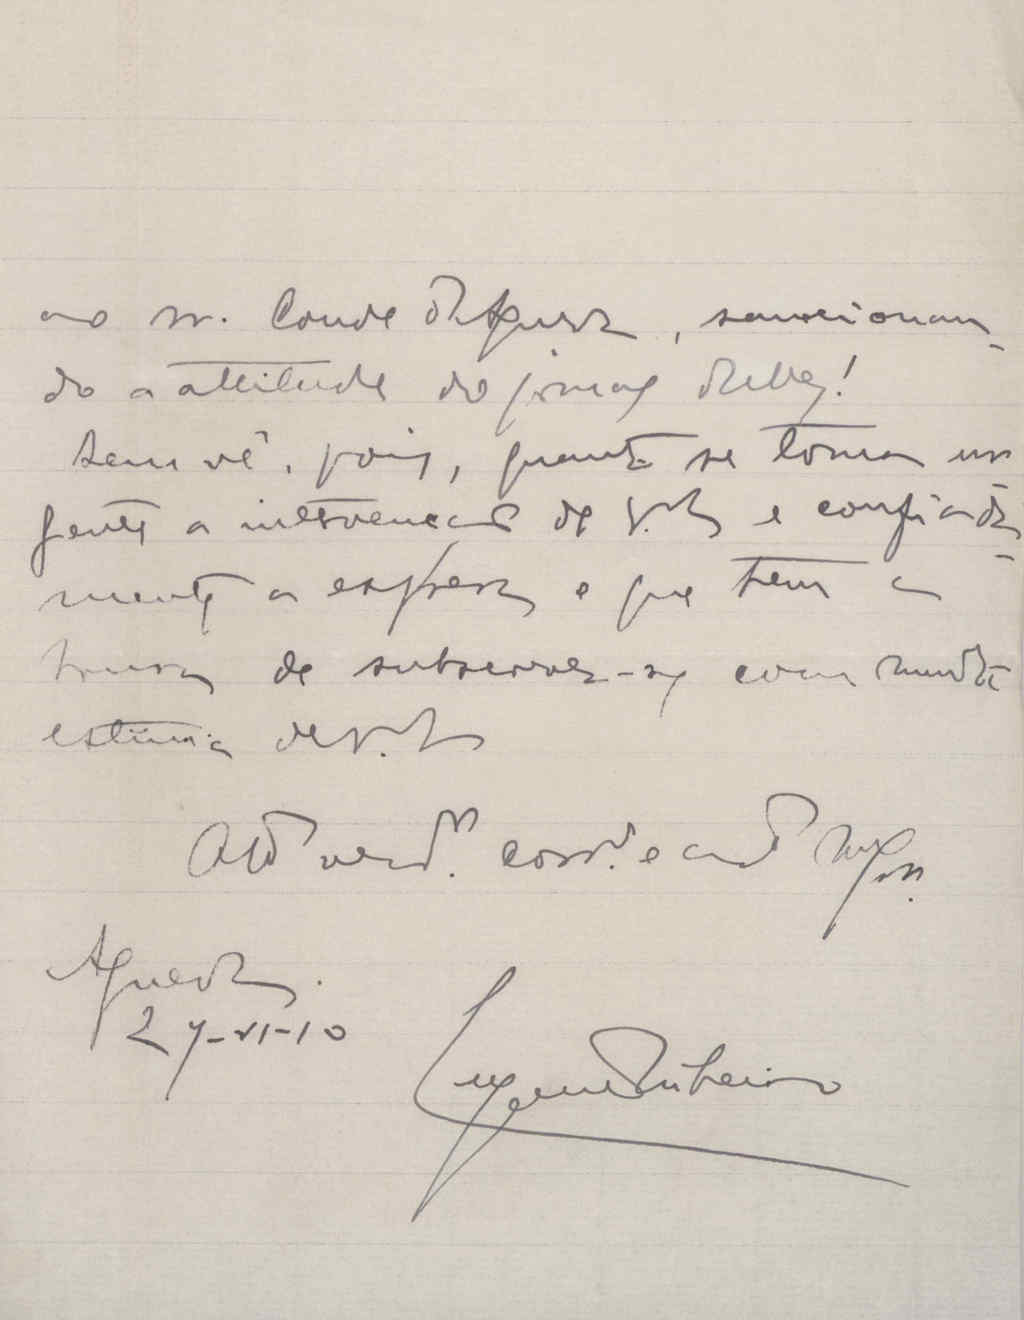 ao sr. Conde d'Agueda, sanccionan-
do a attitude do jornal d'elle!
Bem vê, pois, quanto se torna ur
gente a intervenção de V. Exª e confiada-
mente a espera e que tem a
honra de subscrever-se com muita
estima de V. Exª
Attº venºr. corrº. e crdº
Agueda.
27-VI-10
Eugenio Ribeiro